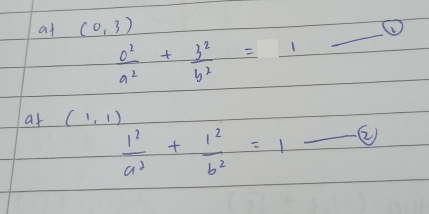 at (0,3)
0²/a² + 3²/b² = 1 —— ①
at (1,1)
1²/a² + 1²/b² = 1 —— ②